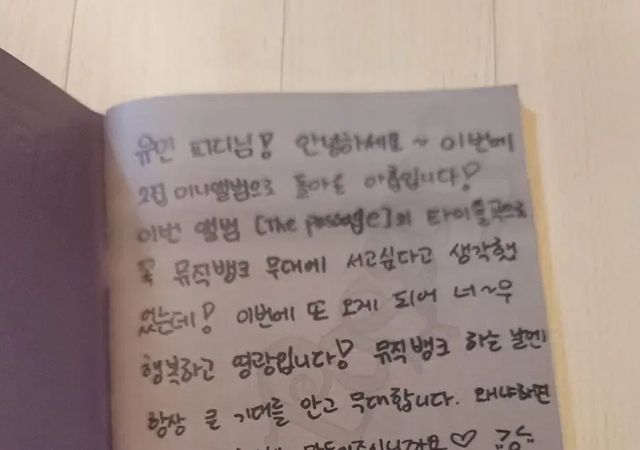 유민 피디님! 안녕하세요 ~ 이번에
2집 미니앨범으로 돌아온 아홉입니다!
이번 앨범 [The passage]의 타이틀곡으로
꼭 뮤직뱅크 무대에 서고싶다고 생각했
었는데! 이번에 또 오게 되어 너~무
행복하고 영광입니다! 뮤직뱅크 하는 날엔
항상 큰 기대를 안고 무대합니다. 왜냐하면
만들어주시니까요♡